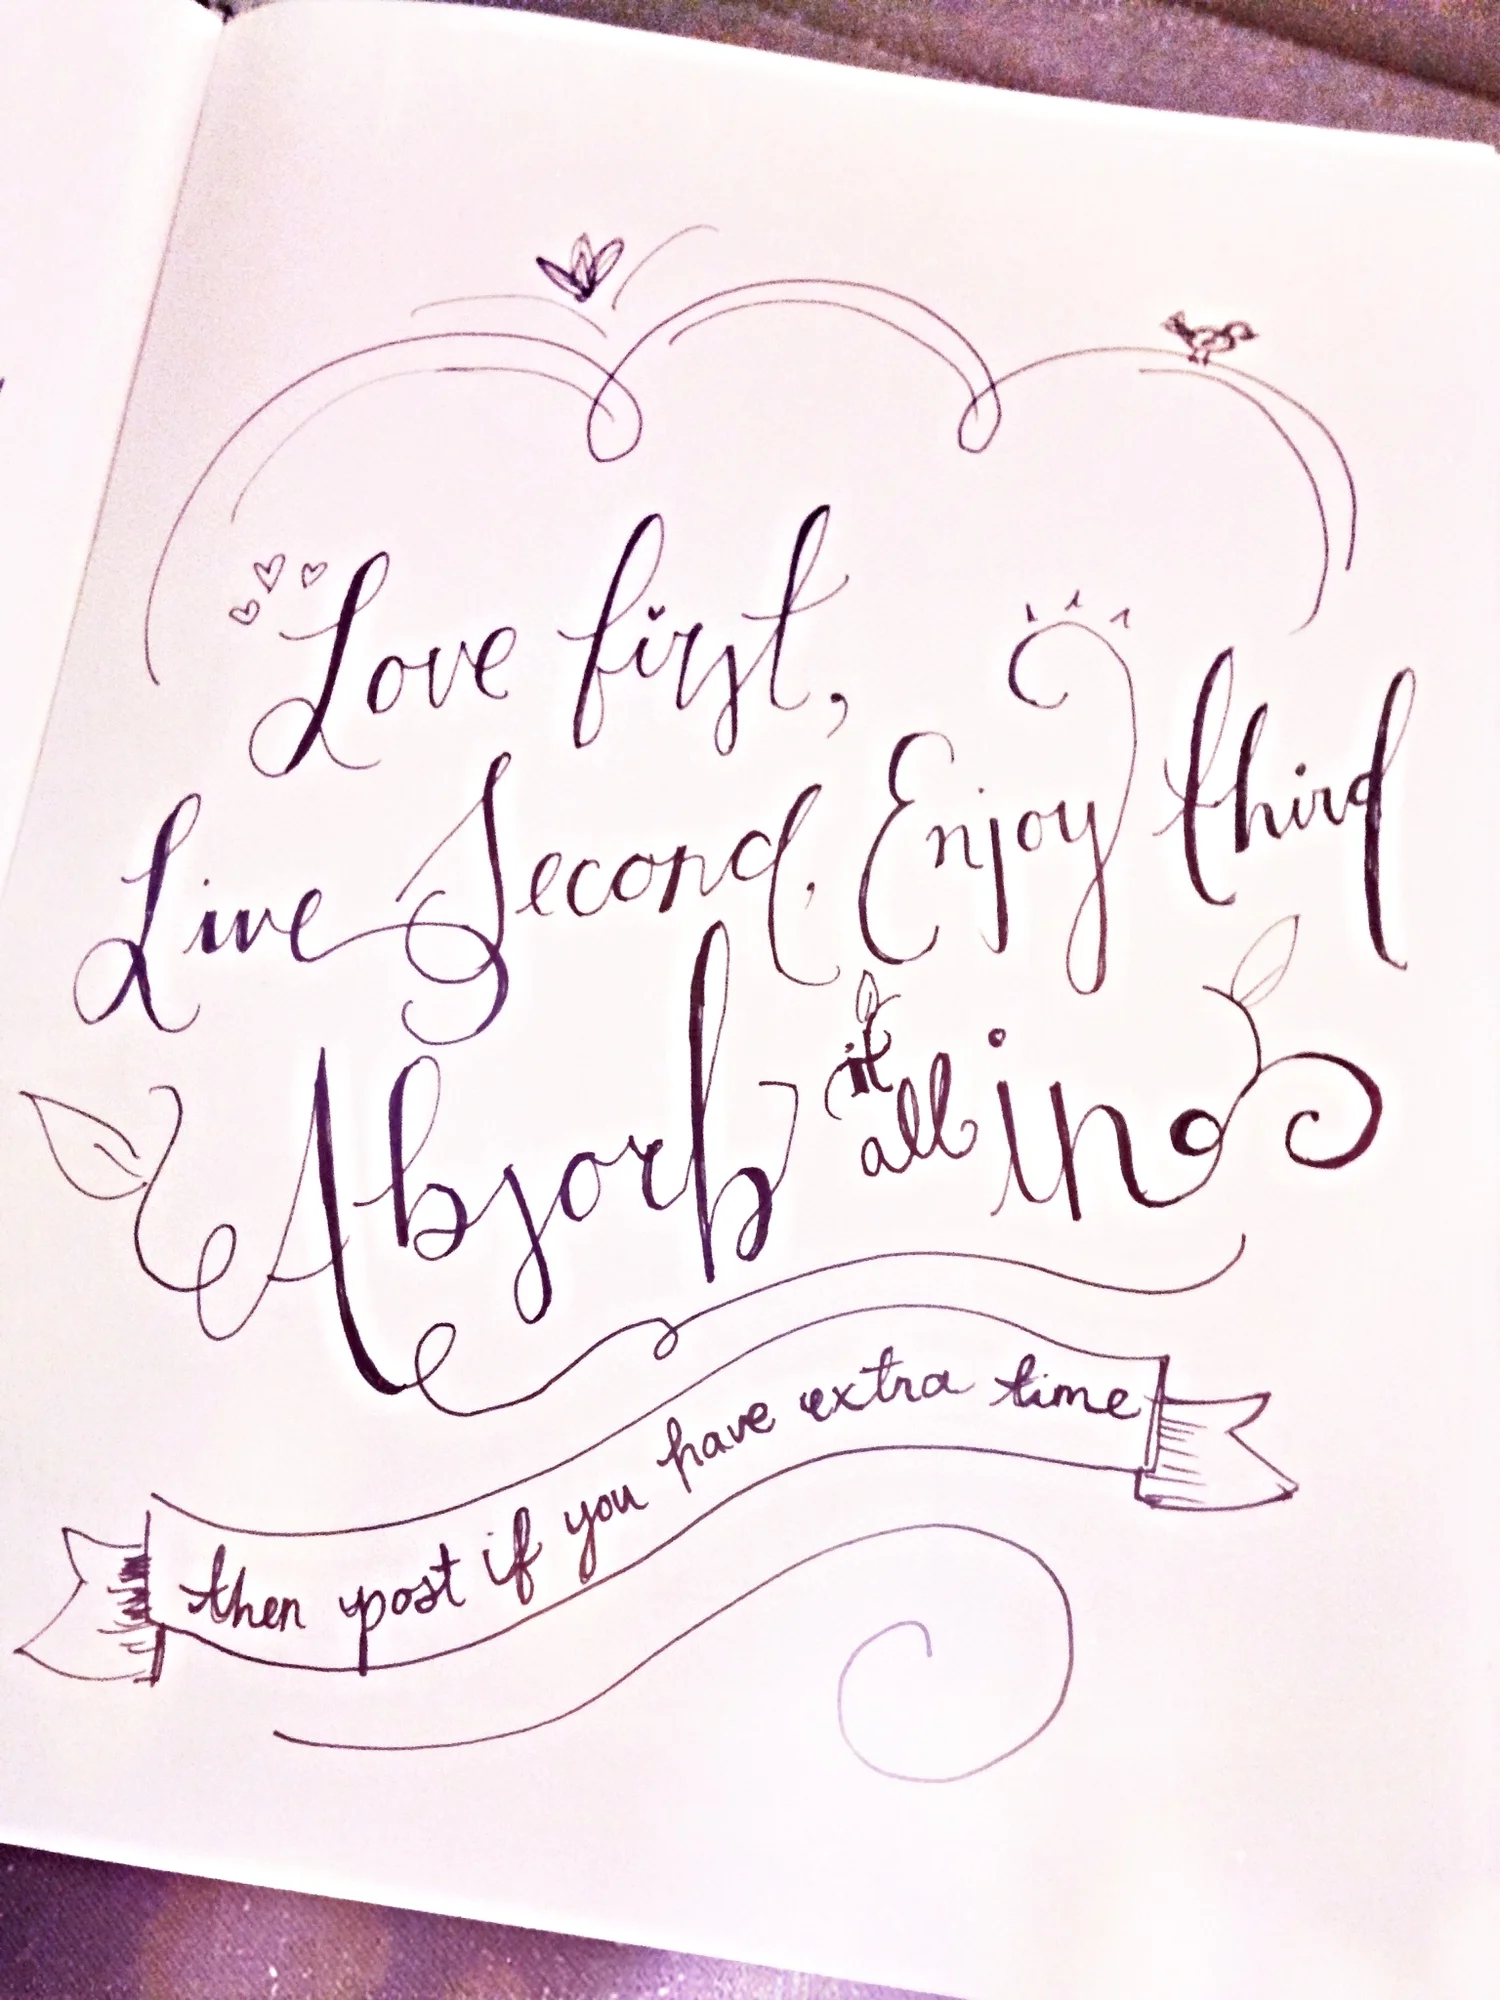 Love first,
Live Second, Enjoy third
Absorb it all in
then post if you have extra time